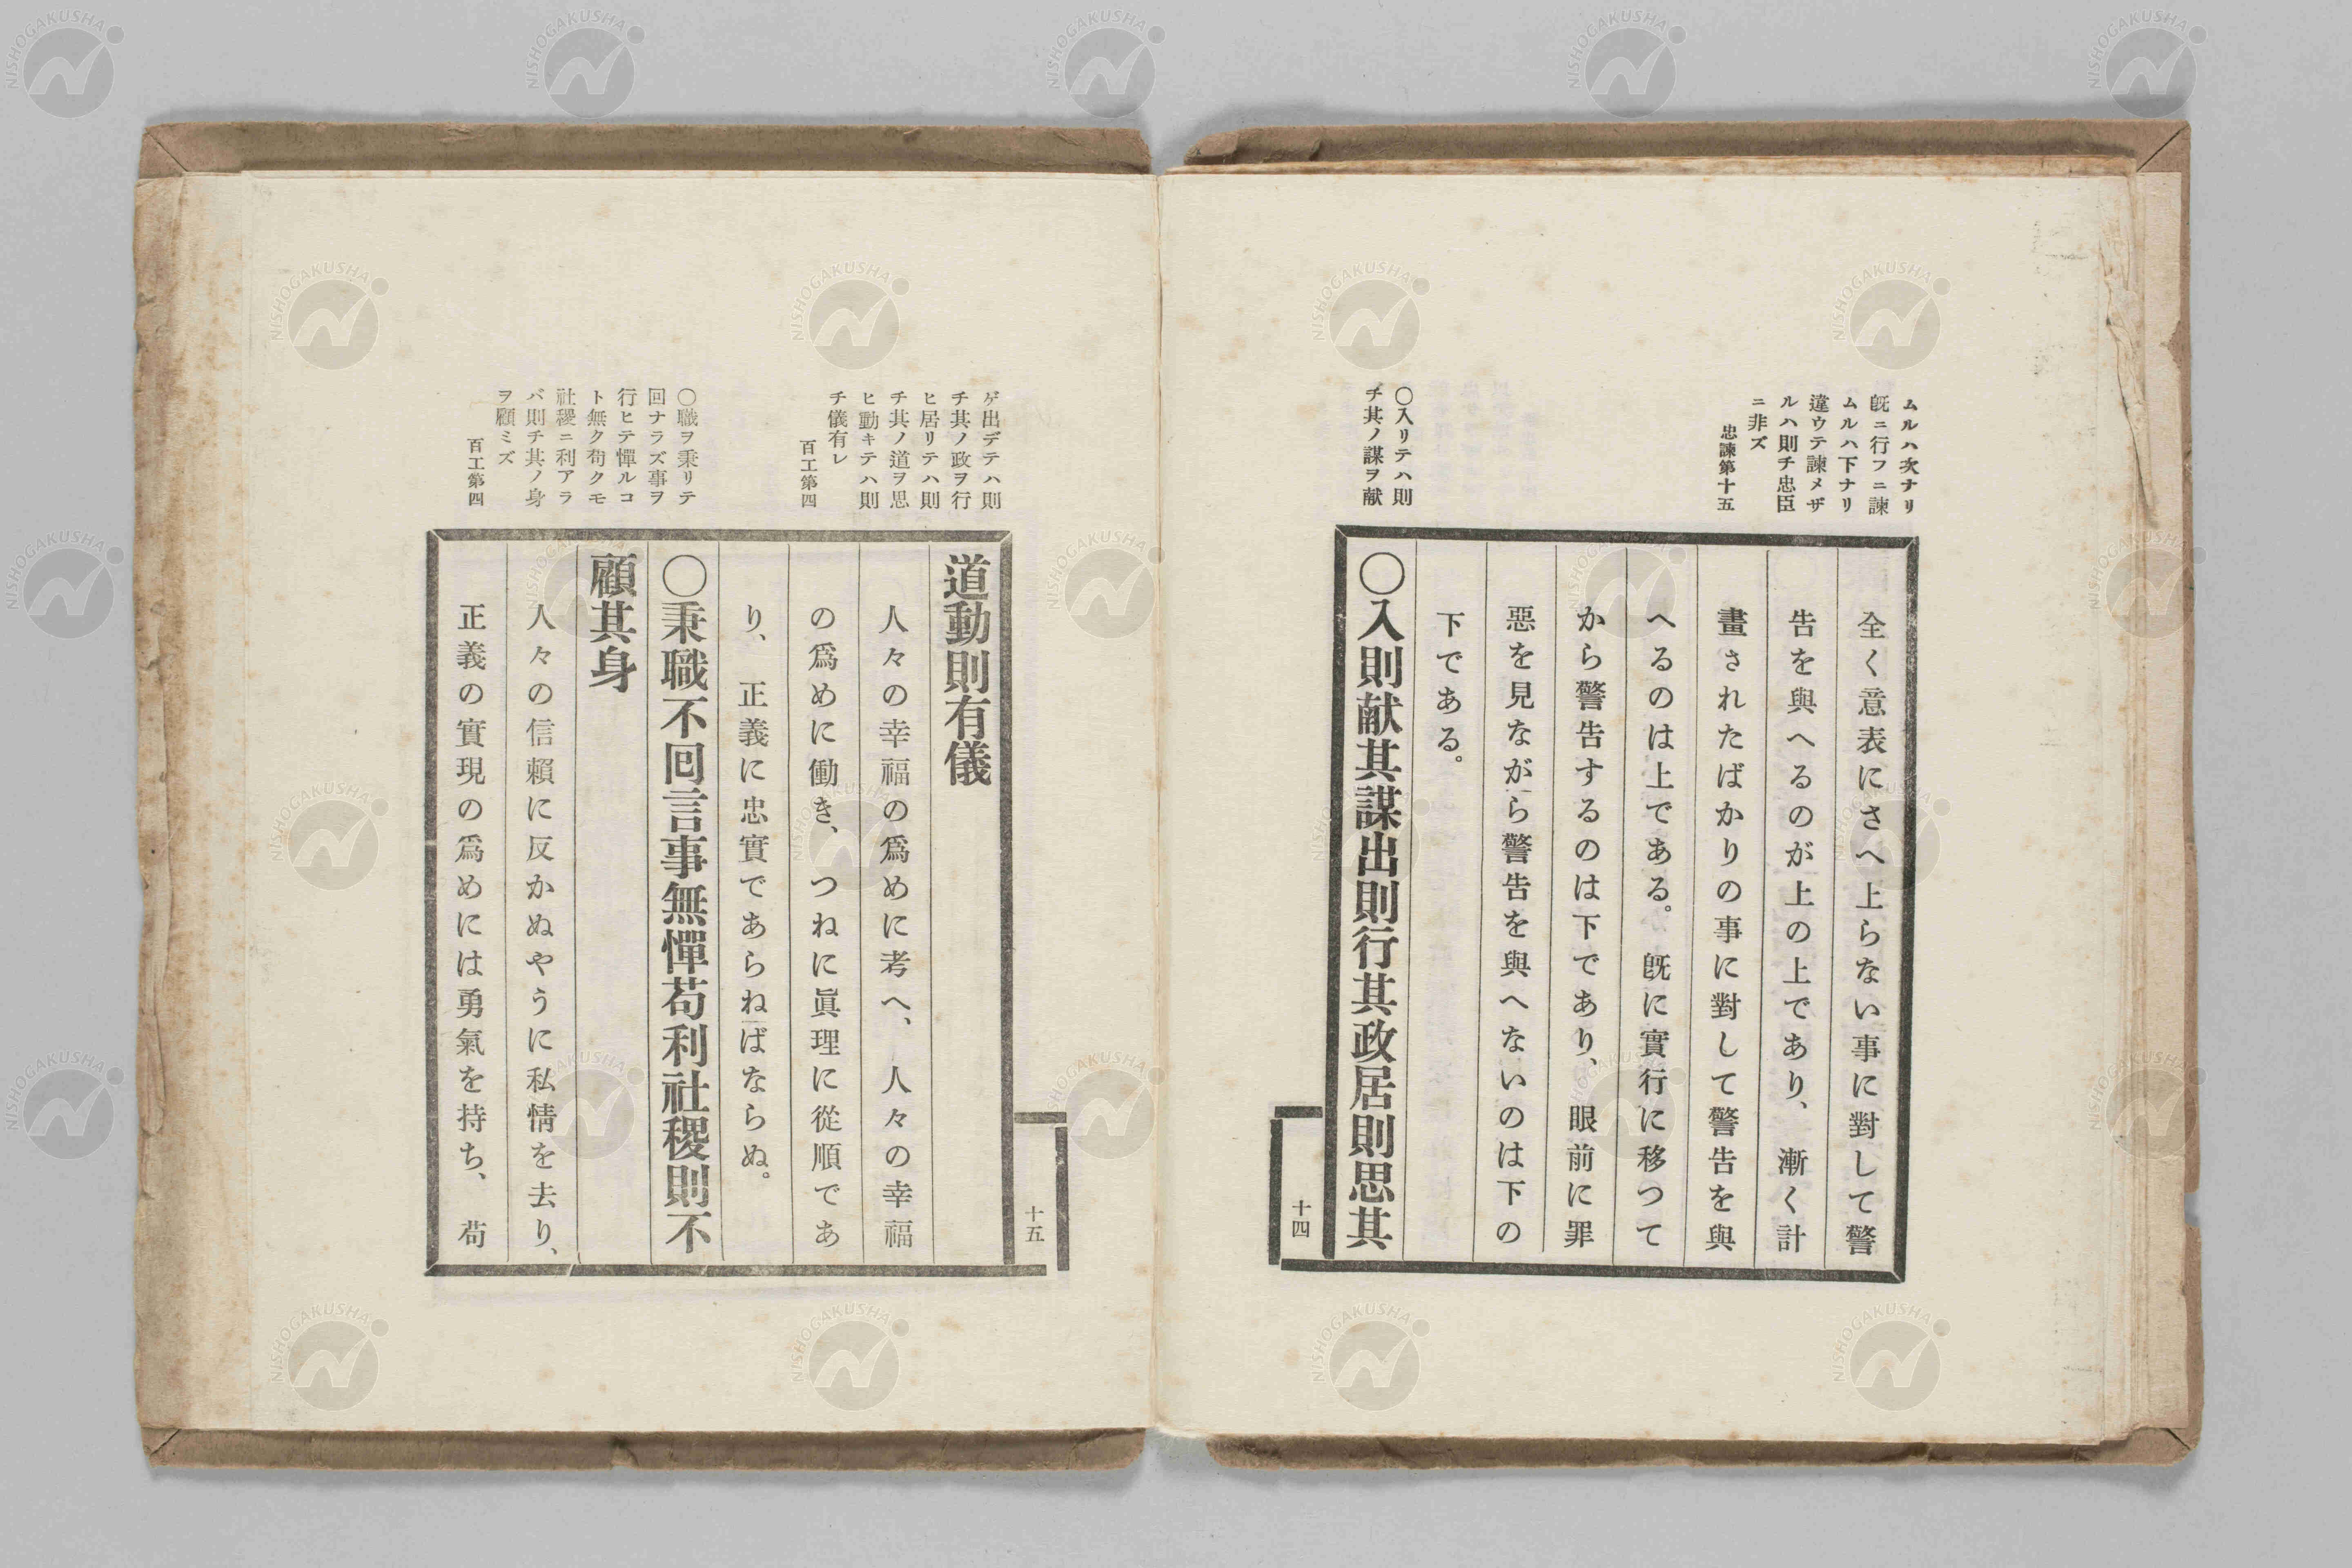 ムルハ次ナリ
既ニ行フニ諫
ムルハ下ナリ
違ウテ諫メザ
ルハ則チ忠臣
ニ非ズ
忠諫第十五
〇入リテハ則
チ其ノ謀ヲ献
全く意表にさへ上らない事に對して警
告を與へるのが上の上であり、漸く計
畫されたばかりの事に對して警告を與
へるのは上である。既に實行に移つて
から警告するのは下であり、眼前に罪
惡を見ながら警告を與へないのは下の
下である。
〇入則献其謀出則行其政居則思其
十四
ゲ出デテハ則
チ其ノ政ヲ行
ヒ居リテハ則
チ其ノ道ヲ思
ヒ動キテハ則
チ儀有レ
百工第四
〇職ヲ秉リテ
回ナラズ事ヲ
行ヒテ憚ルコ
ト無ク苟クモ
社稷ニ利アラ
バ則チ其ノ身
ヲ顧ミズ
百工第四
十五
道動則有儀
人々の幸福の爲めに考へ、人々の幸福
の爲めに働き、つねに眞理に從順であ
り、正義に忠實であらねばならぬ。
〇秉職不回言事無憚苟利社稷則不
顧其身
人々の信賴に反かぬやうに私情を去り、
正義の實現の爲めには勇氣を持ち、苟
NISHOGAKUSHA